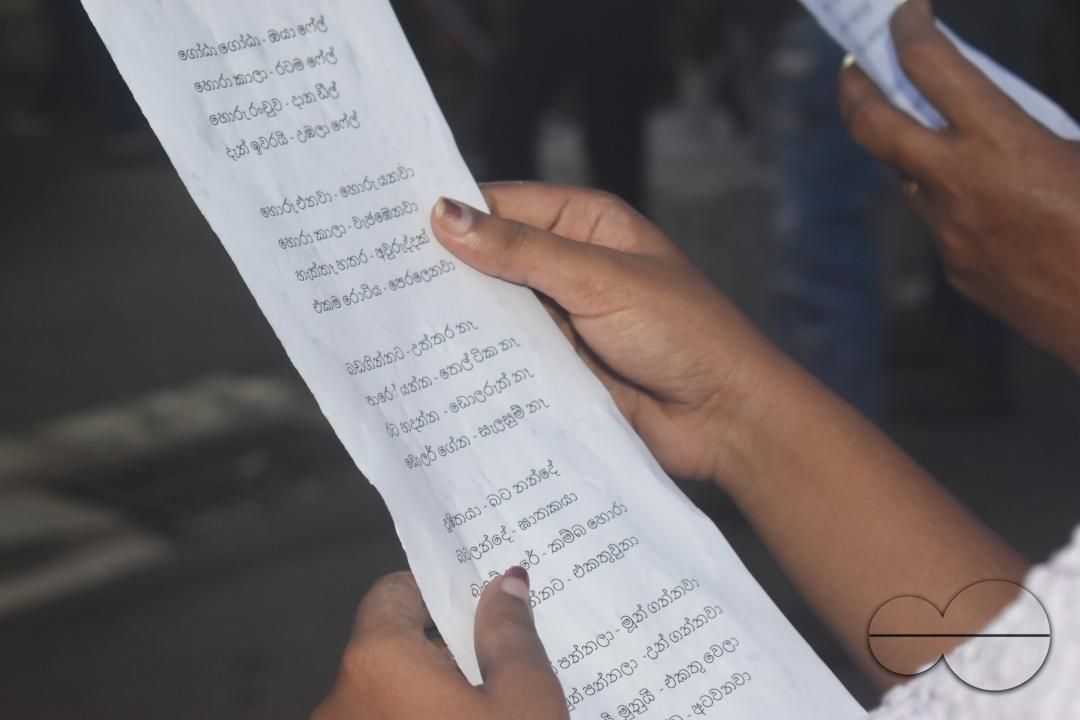 ගෝඨා ගෝඨා - ඔයා ෆේල්
හොරා කාලා - රටම ෆේල්
හොරු රංචුව - දාන ඩීල්
දැන් ඉවරයි - උඹලා ෆේල්
හොරු එනවා - හොරු යනවා
හොරා කාලා - වැජඹෙනවා
හැත්තෑ හතර - අවුරුද්දක්
එකම රොටිය - පෙරලෙනවා
බඩගින්නට - උත්තර නෑ
පාරේ යන්න - තෙල් ටික නෑ
රට හදන්න - ඩොලරුත් නෑ
ඩොලර් ගේන - සැලසුම් නෑ
- බට නන්දේ
- ඝාතකයා
- කම්බ හොරා
- එකතුවුනා
පන්නලා - මූන් ගන්නවා
පන්නලා - උන් ගන්නවා
මුනුයි - එකතු වෙලා
- අටවනවා